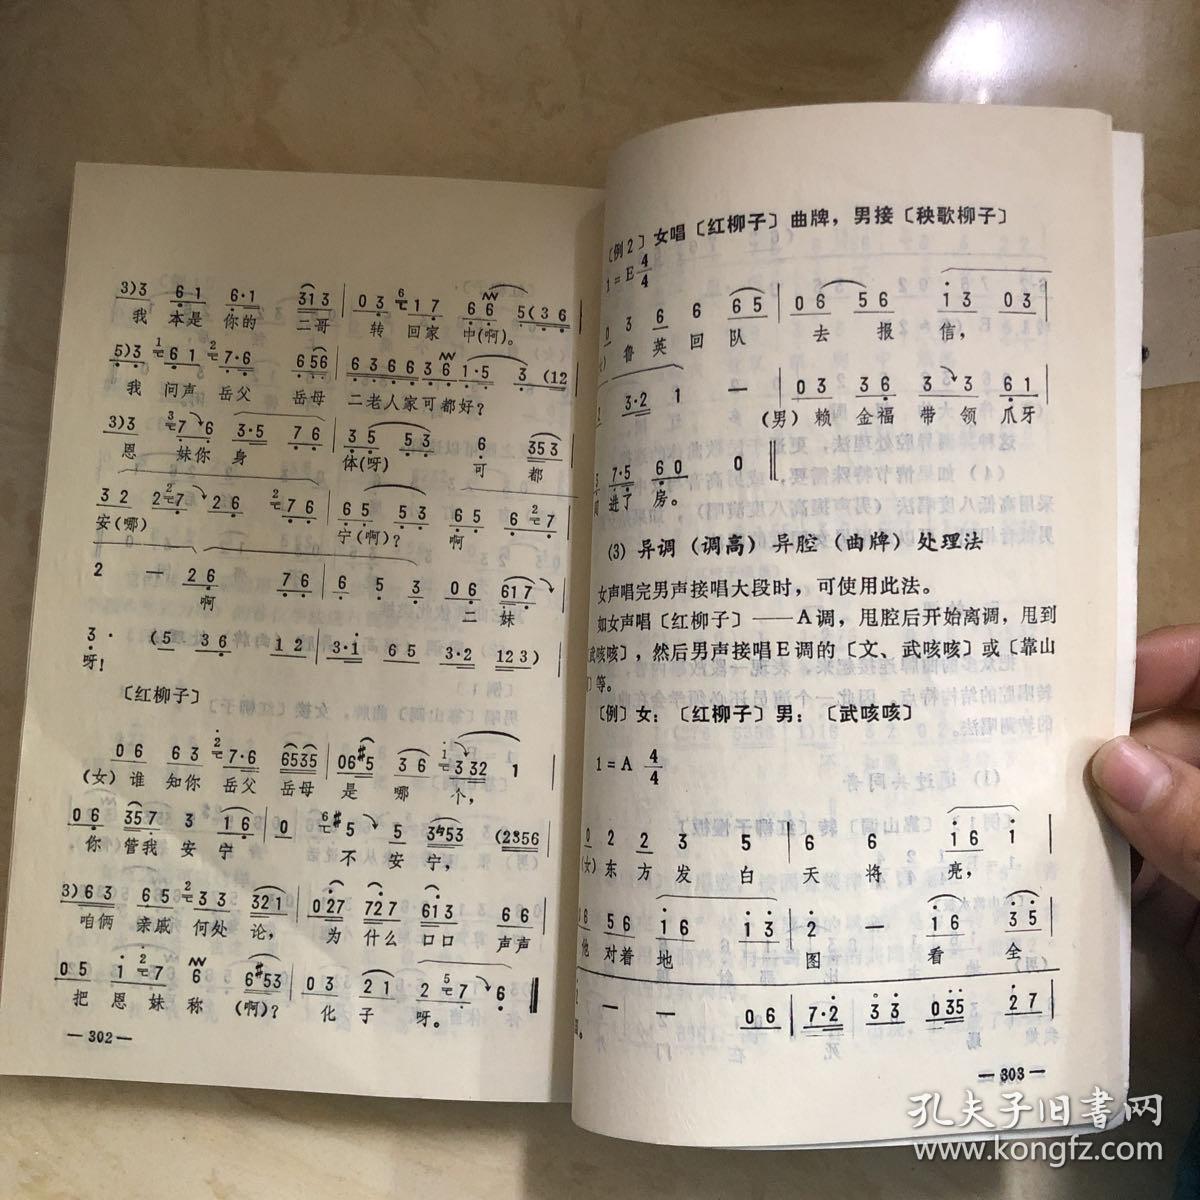 3)3 61 6·1 313 | 03 17 66 5(36
我 本是 你的 二哥 转 回家 中(啊)。
5)3 61 7·6 656 | 6366361·5 3 (12
我 问声 岳父 岳母 二老人家可都好?
3)3 7 6 3·5 76 | 35 53 6 353
恩 妹你 身 体(呀) 可 都
32 27 26 76 | 65 53 65 67
安(哪) 宁(啊)? 啊
2 — 26 76 | 6 5 3 06 617
啊 二 妹
3· (5 36 12 | 3·1 65 3·2 123)
呀!
〔红柳子〕
06 63 7·6 6535 | 06#5 36 332 1
(女)谁 知你 岳父 岳母 是 哪 个,
06 357 3 16 | 0 5 5 3453 (2356
你 管我 安宁 不 安宁,
3)63 65 33 321 | 027 727 613 66
咱俩 亲戚 何处 论, 为 什么 口口 声声
05 17 6 6#53 | 03 21 2 7 6
把 恩妹 称 (啊)? 化 子 呀。
—302—
〔例2〕女唱〔红柳子〕曲牌,男接〔秧歌柳子〕
1=E 4/4
0 3 6 6 65 | 06 56 13 03
鲁 英 回 队 去 报 信,
3·2 1 — | 03 36 3 3 61
(男)赖 金福 带 领 爪牙
7·5 60 0
进了 房。
(3) 异调(调高)异腔(曲牌)处理法
女声唱完男声接唱大段时,可使用此法。
如女声唱〔红柳子〕——A调,甩腔后开始离调,甩到
武咳咳〕,然后男声接唱E调的〔文、武咳咳〕或〔靠山
〕等。
〔例〕女:〔红柳子〕男:〔武咳咳〕
1=A 4/4
0 2 2 3 5 | 6 6 16 1
(女)东 方 发 白 天 将 亮,
6 56 16 13 | 2 — 16 35
他 对着 地 图 看 全
— — 06 | 7·2 33 035 27
—303—
孔夫子旧书网
www.kongfz.com